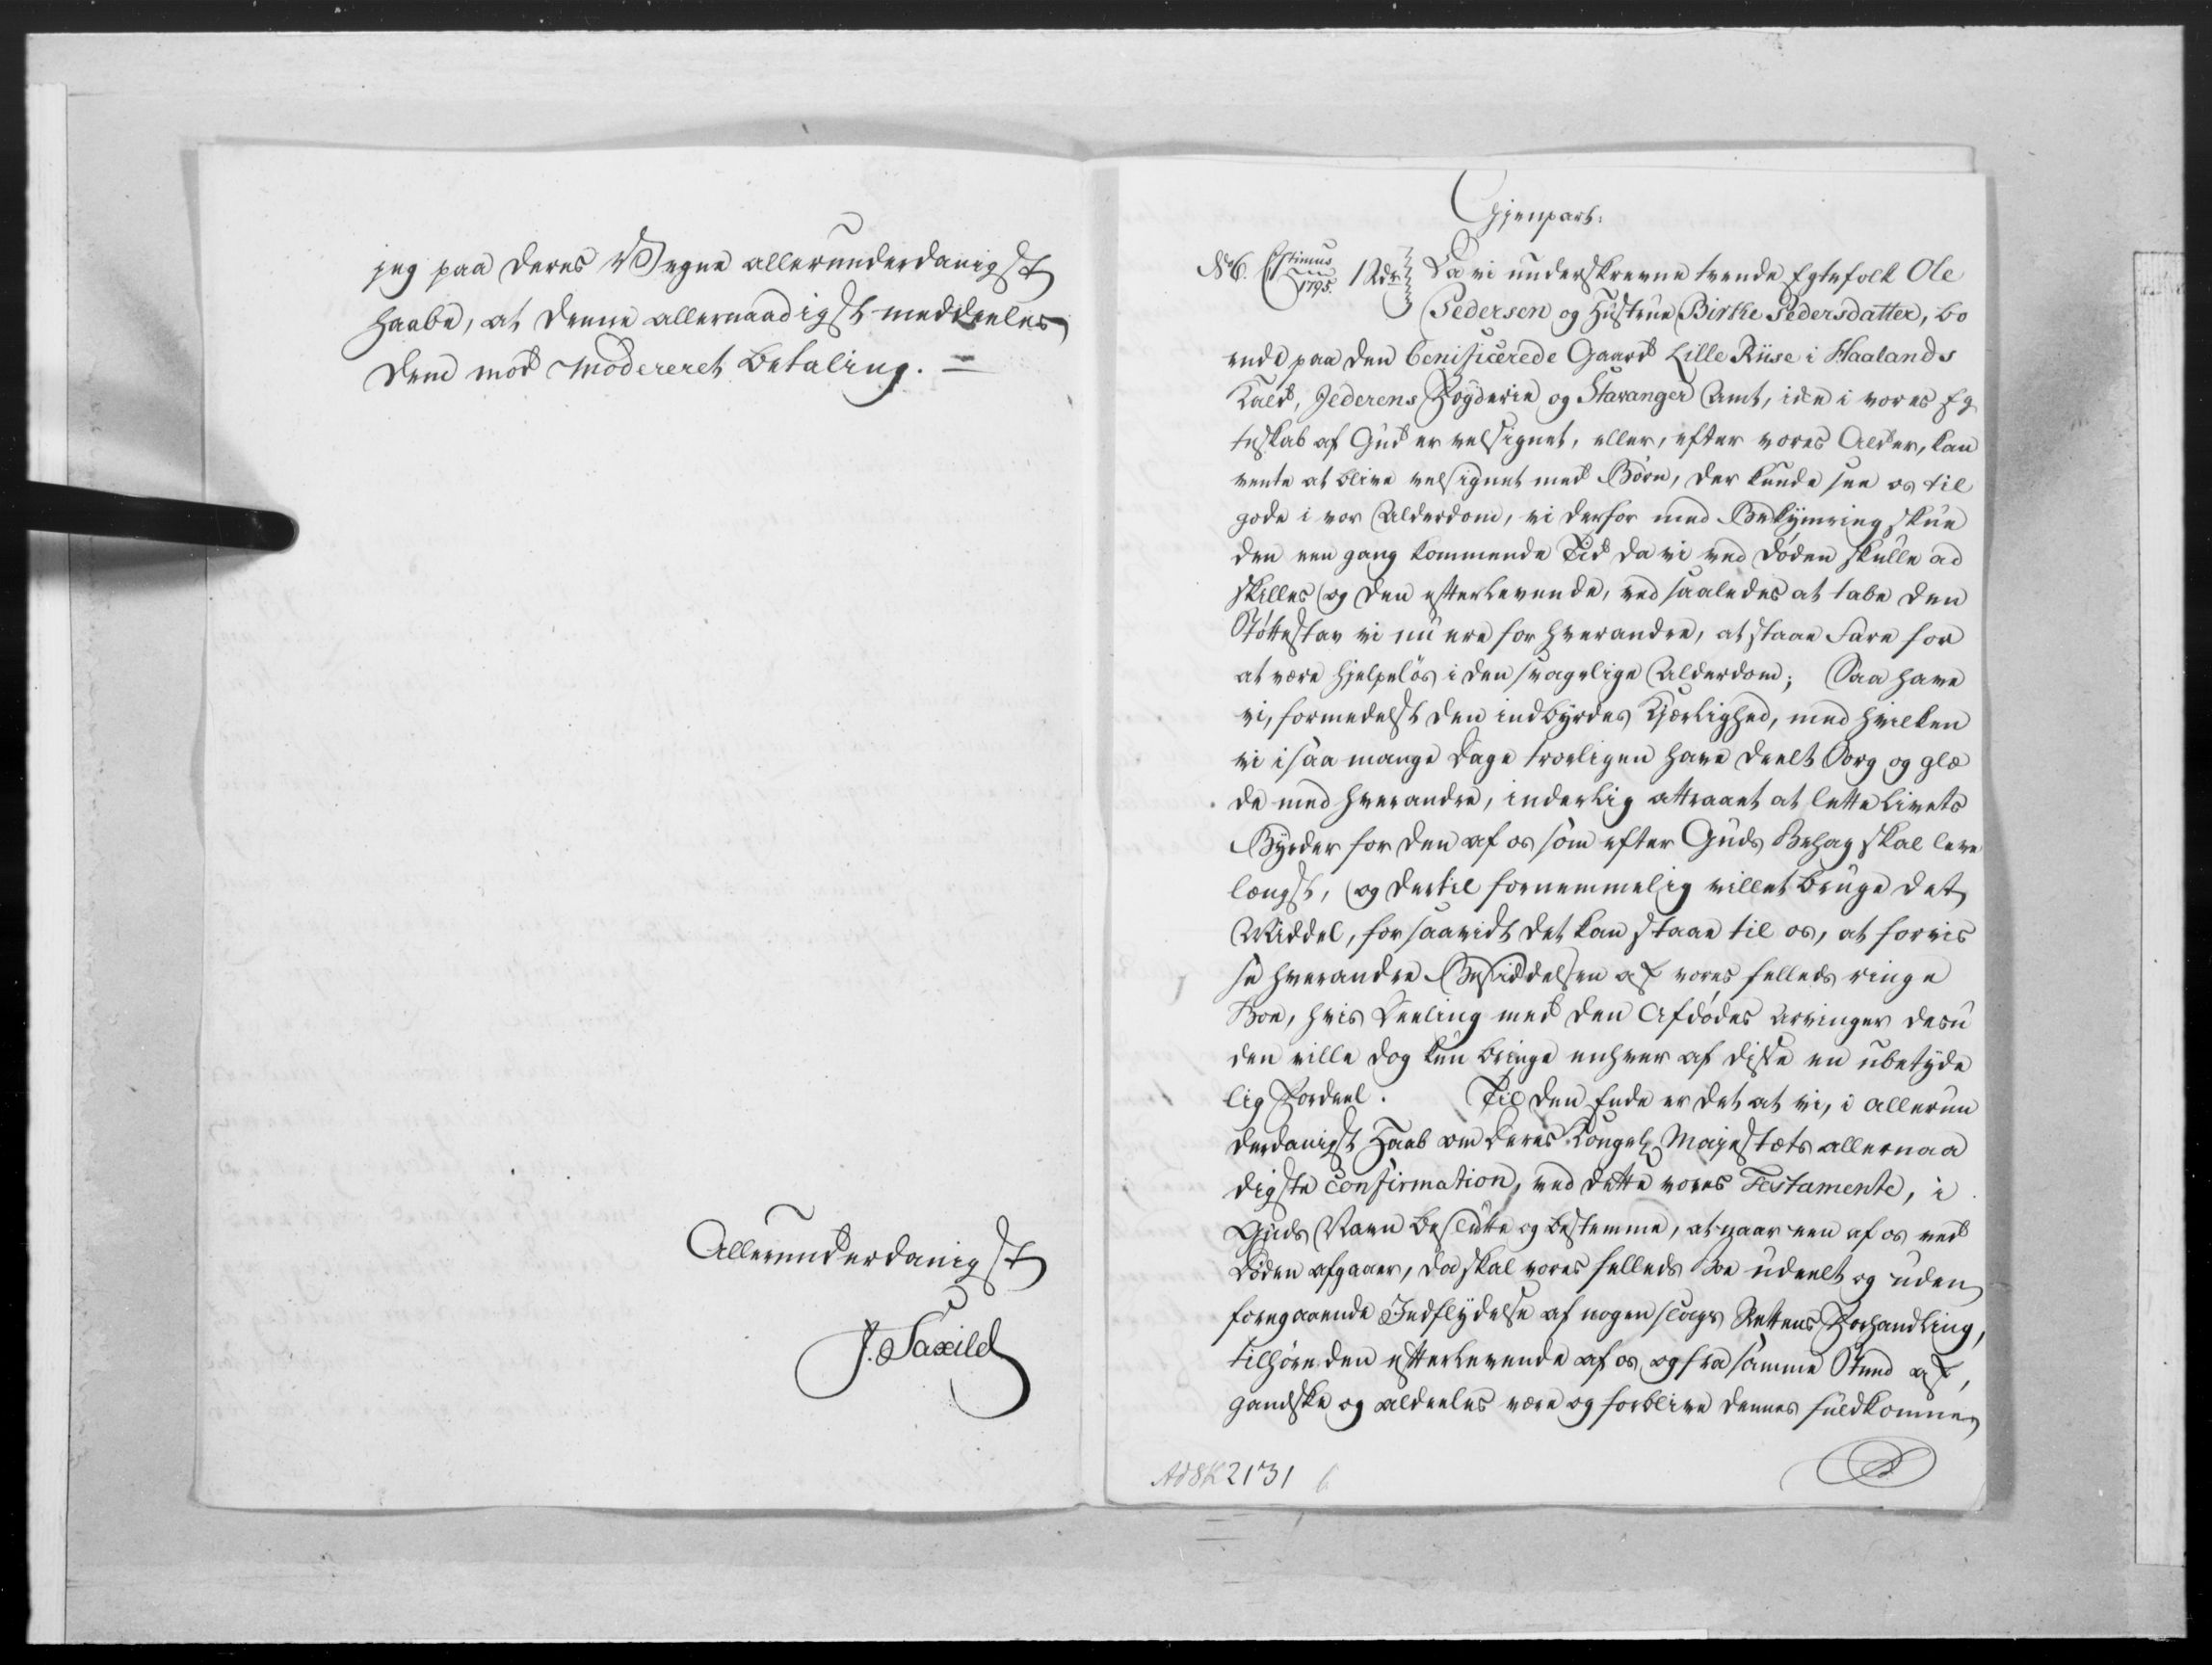 jeg paa deres Vegne allerunderdanigst
haabe, at denne allernaadigst meddeeles
dem mod modereret Betaling. =
Allerunderdanigst
J. Saxild
Gjenpart:
No 6. 1795. 1 Rdr Da vi underskrevne tvende Egtefolk Ole
Pedersen og Hustrue Birthe Pedersdatter, bo
ende paa den benificerede Gaard Lille Riise i Haalands
Kald, Jederens Fogderie og Stavanger Amt, ide i vores Eg
teskab af Gud er velsignet, eller, efter vores Alder, kan
vente at blive velsignet med Børn, der kunde see os til
gode i vor Alderdom, vi derfor med Bekymring skue
den een gang kommende Tid da vi ved Døden skulle ad
skilles og den efterlevende, ved saaledes at tabe den
Støttestav vi nu ere for hverandre, at staae Fare for
at være hjelpeløs i den svagelige Alderdom; Saa have
vi, formedelst den indbyrdes Kjærlighed, med hvilken
vi i saa mange Dage troeligen have deelt Sorg og glæ
de med hverandre, inderlig attraaet at lette Livets
Byrder for den af os som efter Guds Behag skal leve
længst, og dertil fornemmelig villet bruge det
Middel, forsaavidt det kan staae til os, at forvis
se hverandre Besiddelsen af vores felleds ringe
Boe, hvis Deeling med den Afdødes Arvinger desu
den ville dog kun bringe enhver af disse en ubetyde
lig Fordeel. Til den Ende er det at vi, i allerun
derdanigst Haab om Deres Kongel. Majestæts allernaa
digste Confirmation, ved dette vores Testamente, i
Guds Navn beslutte og bestemme, at naar een af os ved
Døden afgaaer, da skal vores felleds Boe udeelt og uden
foregaaende Indflydelse af nogen slags Rettens Forhandling,
tilhøre den efterlevende af os og fra samme Stund af,
gandske og aldeeles være og forblive dennes fuldkomne
Ad 8K 2131